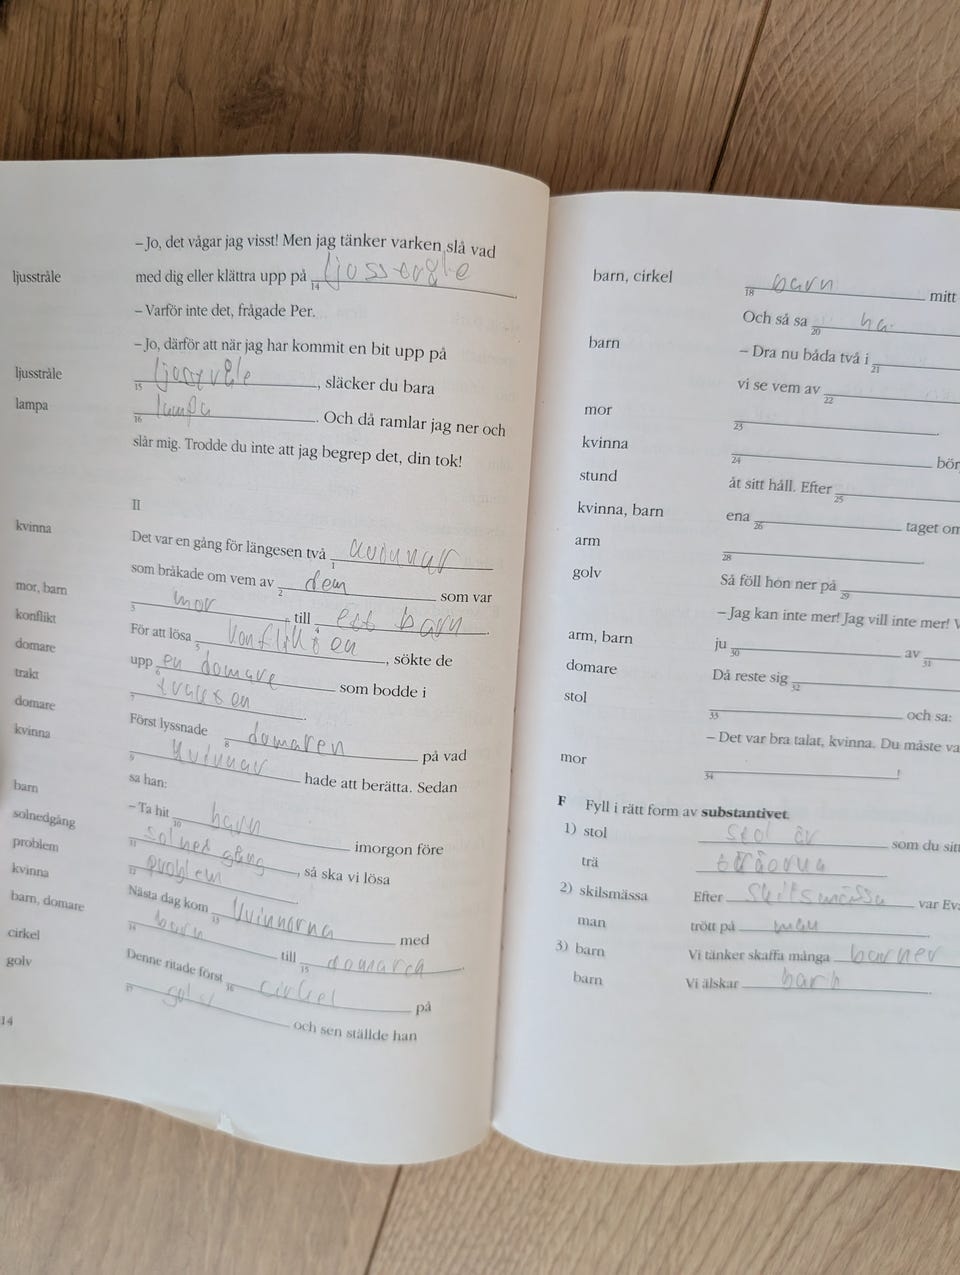 – Jo, det vågar jag visst! Men jag tänker varken slå vad
ljusstråle med dig eller klättra upp på 14
– Varför inte det, frågade Per.
– Jo, därför att när jag har kommit en bit upp på
ljusstråle 15 , släcker du bara
lampa 16 lampa . Och då ramlar jag ner och
slår mig. Trodde du inte att jag begrep det, din tok!
II
kvinna Det var en gång för längesen två 1
som bråkade om vem av 2 dem som var
mor, barn 3 mor till 4 ett barn .
konflikt För att lösa 5 konflikten , sökte de
domare upp 6 en domare som bodde i
trakt 7 trakten .
domare Först lyssnade 8 domaren på vad
kvinna 9 kvinnar hade att berätta. Sedan
sa han:
barn – Ta hit 10 barn imorgon före
solnedgång 11 solnedgång , så ska vi lösa
problem 12 problem
kvinna Nästa dag kom 13 kvinnorna med
barn, domare 14 barn till 15 domaren .
cirkel Denne ritade först 16 cirkel på
golv 17 golv och sen ställde han
14
barn, cirkel 18 barn mitt
Och så sa 20
barn – Dra nu båda två i 21
vi se vem av 22
mor 23 .
kvinna 24 bör
stund åt sitt håll. Efter 25
kvinna, barn ena 26 taget om
arm 28
golv Så föll hon ner på 29
– Jag kan inte mer! Jag vill inte mer! V
arm, barn ju 30 av 31
domare Då reste sig 32
stol 33 och sa:
– Det var bra talat, kvinna. Du måste va
mor 34 !
F Fyll i rätt form av substantivet.
1) stol stol är som du sitt
trä träorna
2) skilsmässa Efter skilsmässa var Eva
man trött på man
3) barn Vi tänker skaffa många barner
barn Vi älskar barn .